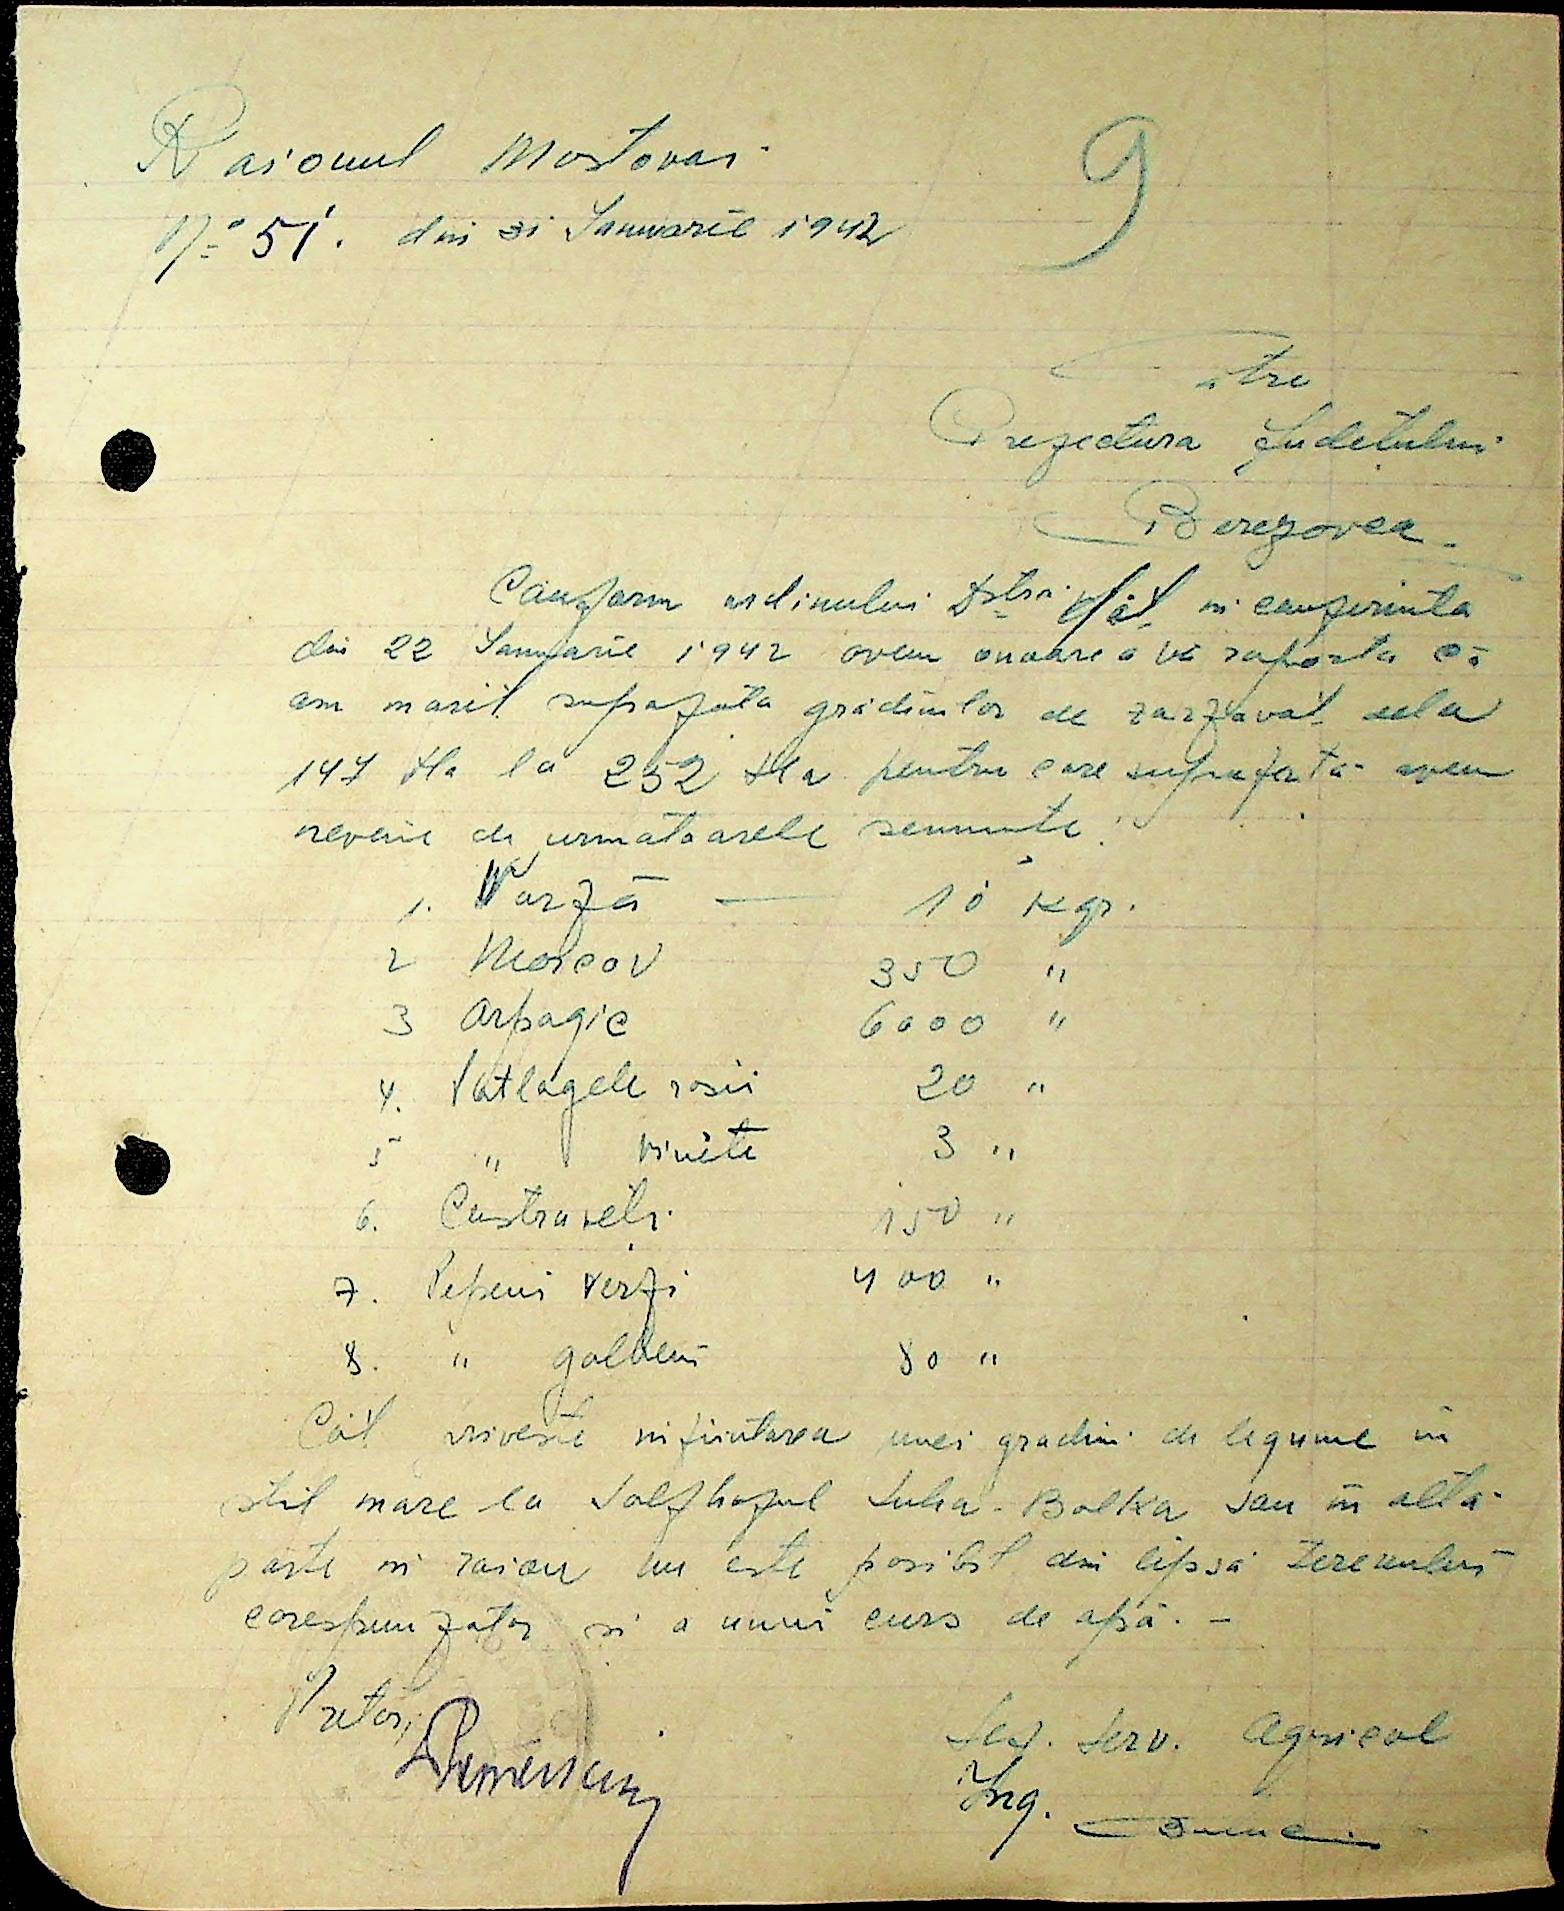 Raionul Mostovoi
9
No 51. din 31 Ianuarie 1942
Către
Prefectura Județului
Berezovca
Conform ordinului Dstră dat in conferinta
din 22 Ianuarie 1942 avem onoare a vă raporta că
am marit suprafata gradinilor de zarzavat dela
147 Ha la 252 Ha pentru care suprafată avem
nevoie de urmatoarele seminte:
1. Varză — 10 Kgr.
2 Morcov 350 "
3 Arpagic 6000 "
4. Patlagele rosii 20 "
5 " vinete 3 "
6. Castraveti 150 "
7. Pepeni verzi 400 "
8. " galbeni 80 "
Cât priveste infiintarea unei gradini de legume in
stil mare la Solfhozul Suha-Balka sau in altă
parte in raion nu este posibil din lipsă terenului
corespunzator si a unui curs de apă. -
Pretor,
Serv. Agricol
Ing.